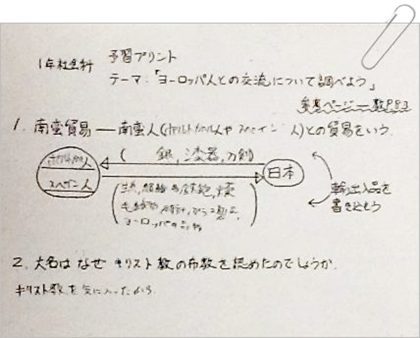 1年社会科 予習プリント
テーマ:「ヨーロッパ人との交流について調べよう」
参考ページー教P82
1. 南蛮貿易 ― 南蛮人(ポルトガル人やスペイン人)との貿易をいう。
(銀,漆器,刀剣)
ポルトガル人
スペイン人
日本
(生糸,絹織物,鉄砲,
毛織物,時計,ガラス製品,
ヨーロッパの品物)
輸出入品を
書き込もう
2. 大名はなぜキリスト教の布教を認めたのでしょうか。
キリスト教を気に入ったから